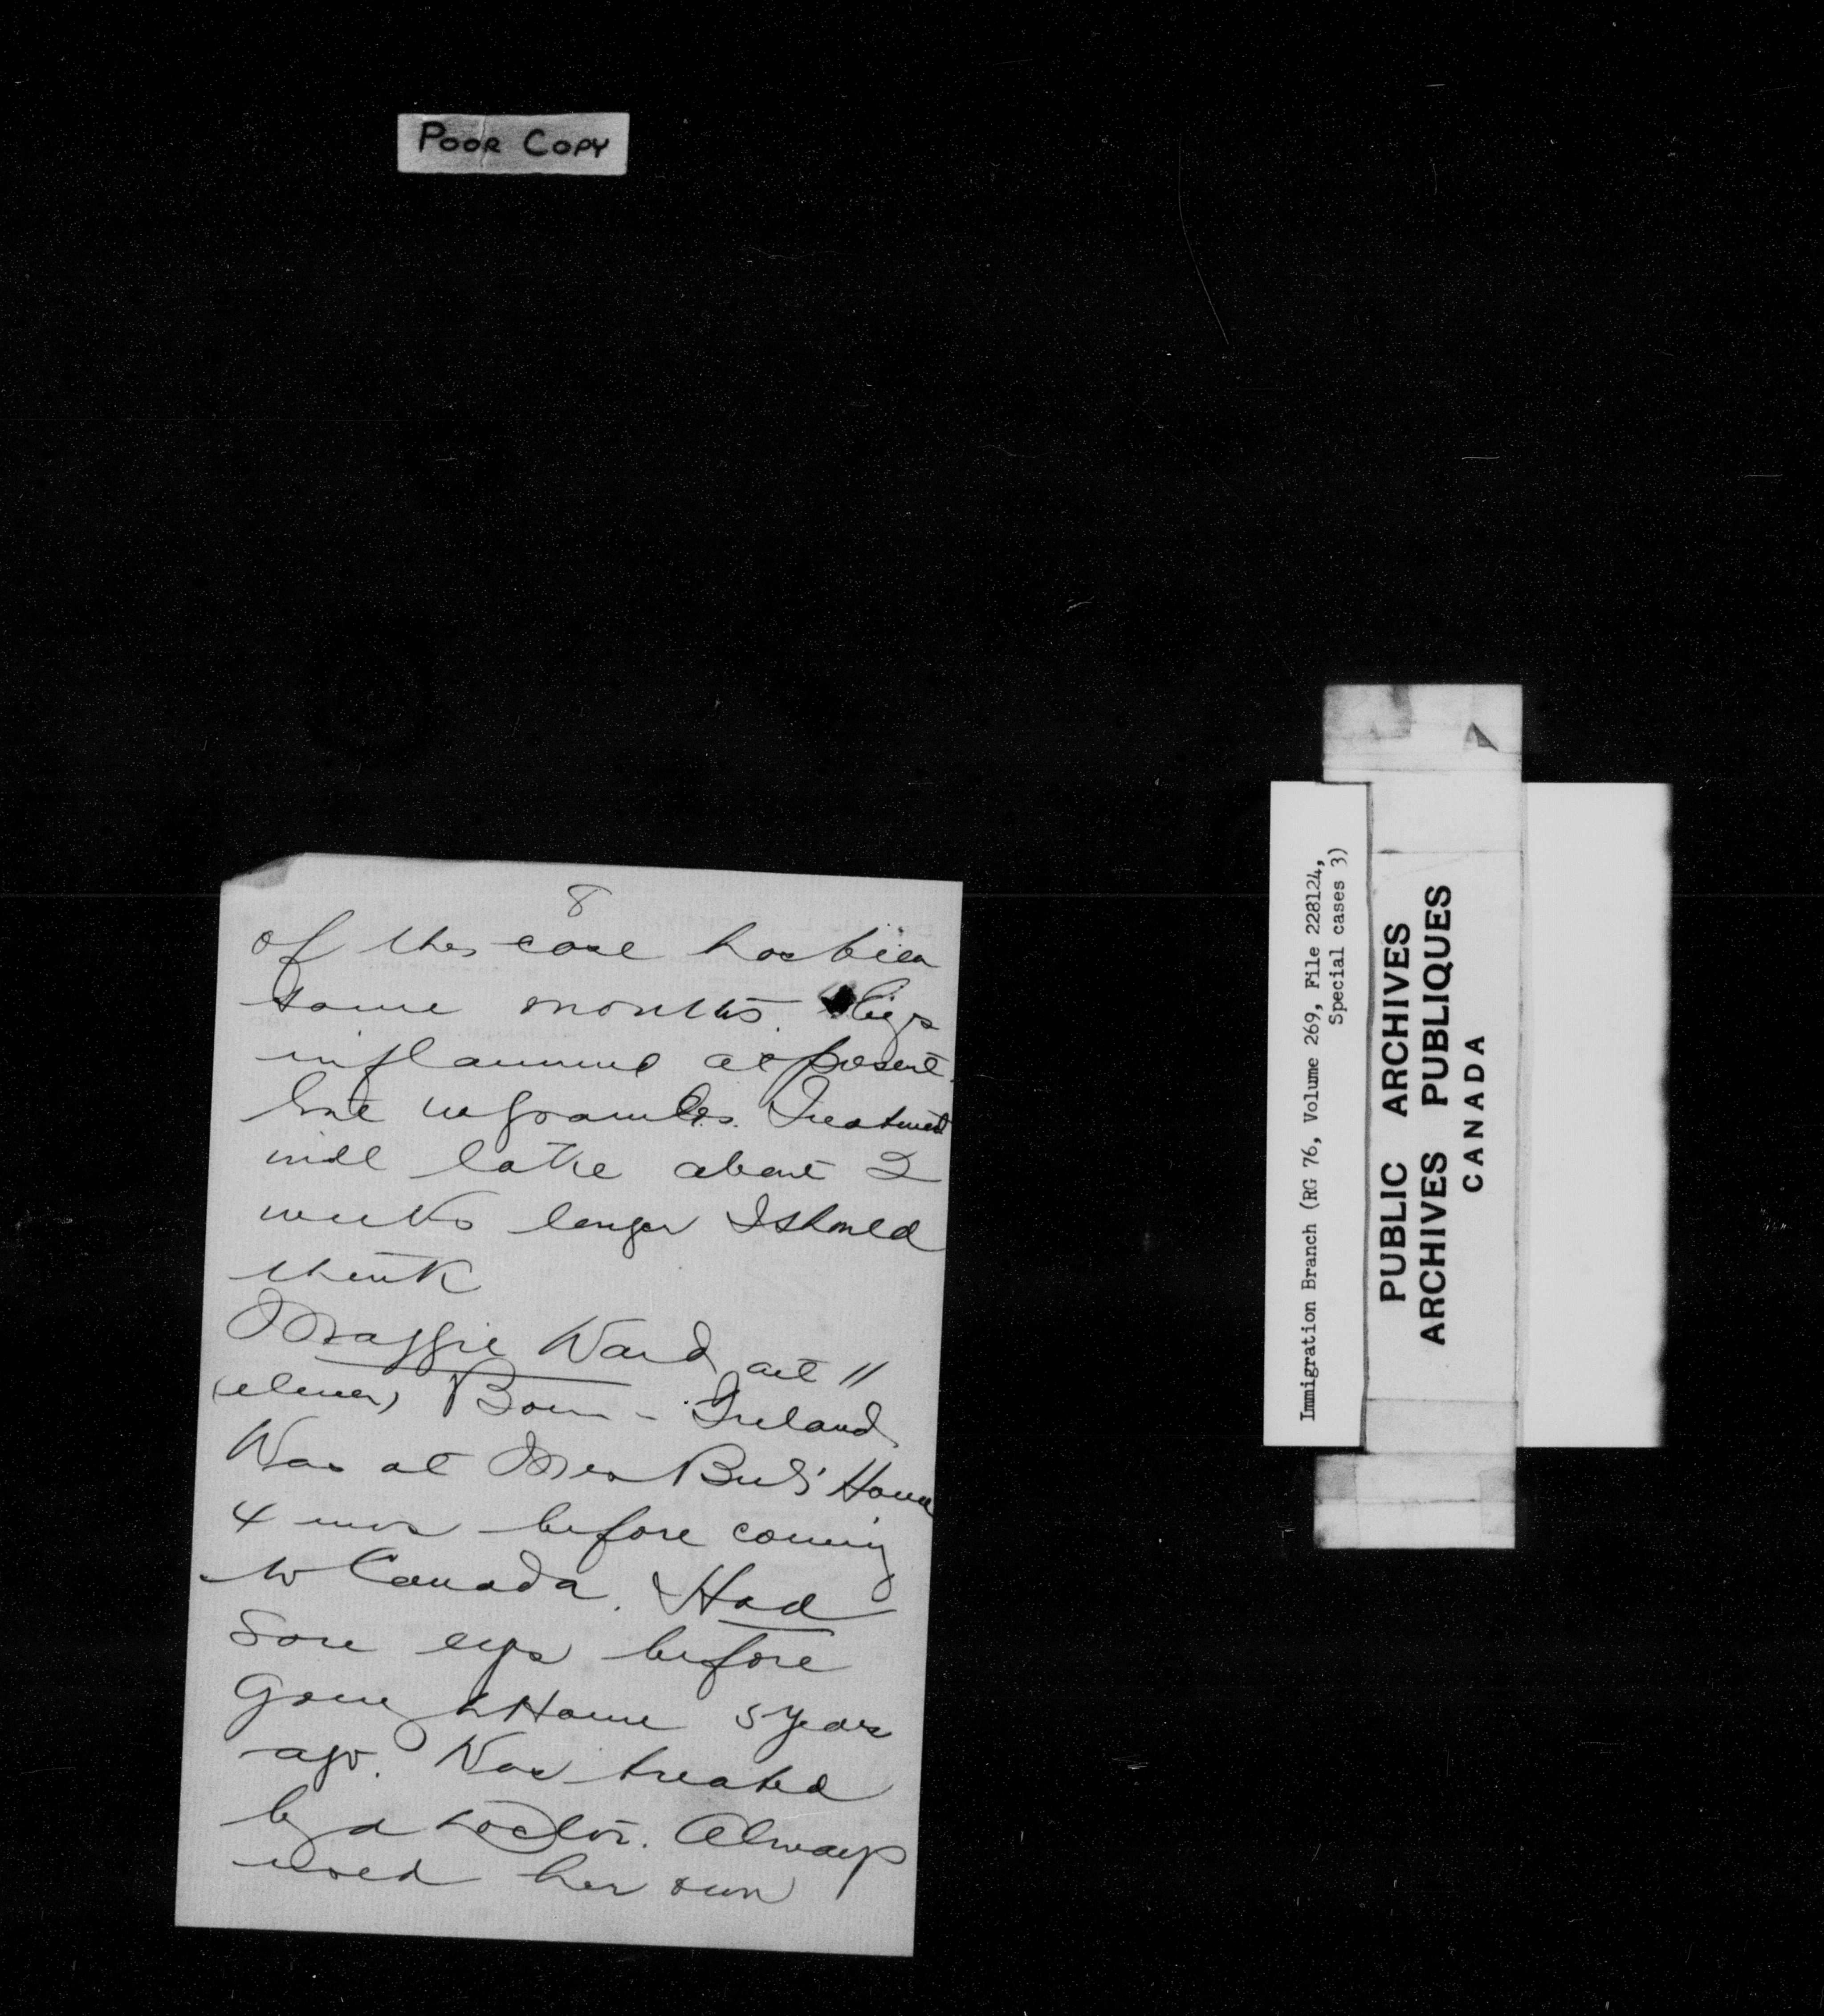 POOR COPY
8
of this case has been
some months. Eyes
inflamed at present.
but no granules. Treatment
will take about 2
weeks longer I should
think
Maggie Ward aet 11
(eleven) Born - Ireland
Was at Mrs Home
4 mos before coming
to Canada. Had
Sore eyes before
going to Home 5 years
ago. Was treated
by a Doctor. Always
used her own
Immigration Branch (RG 76, Volume 269, File 228124,
Special cases 3)
PUBLIC ARCHIVES
ARCHIVES PUBLIQUES
CANADA